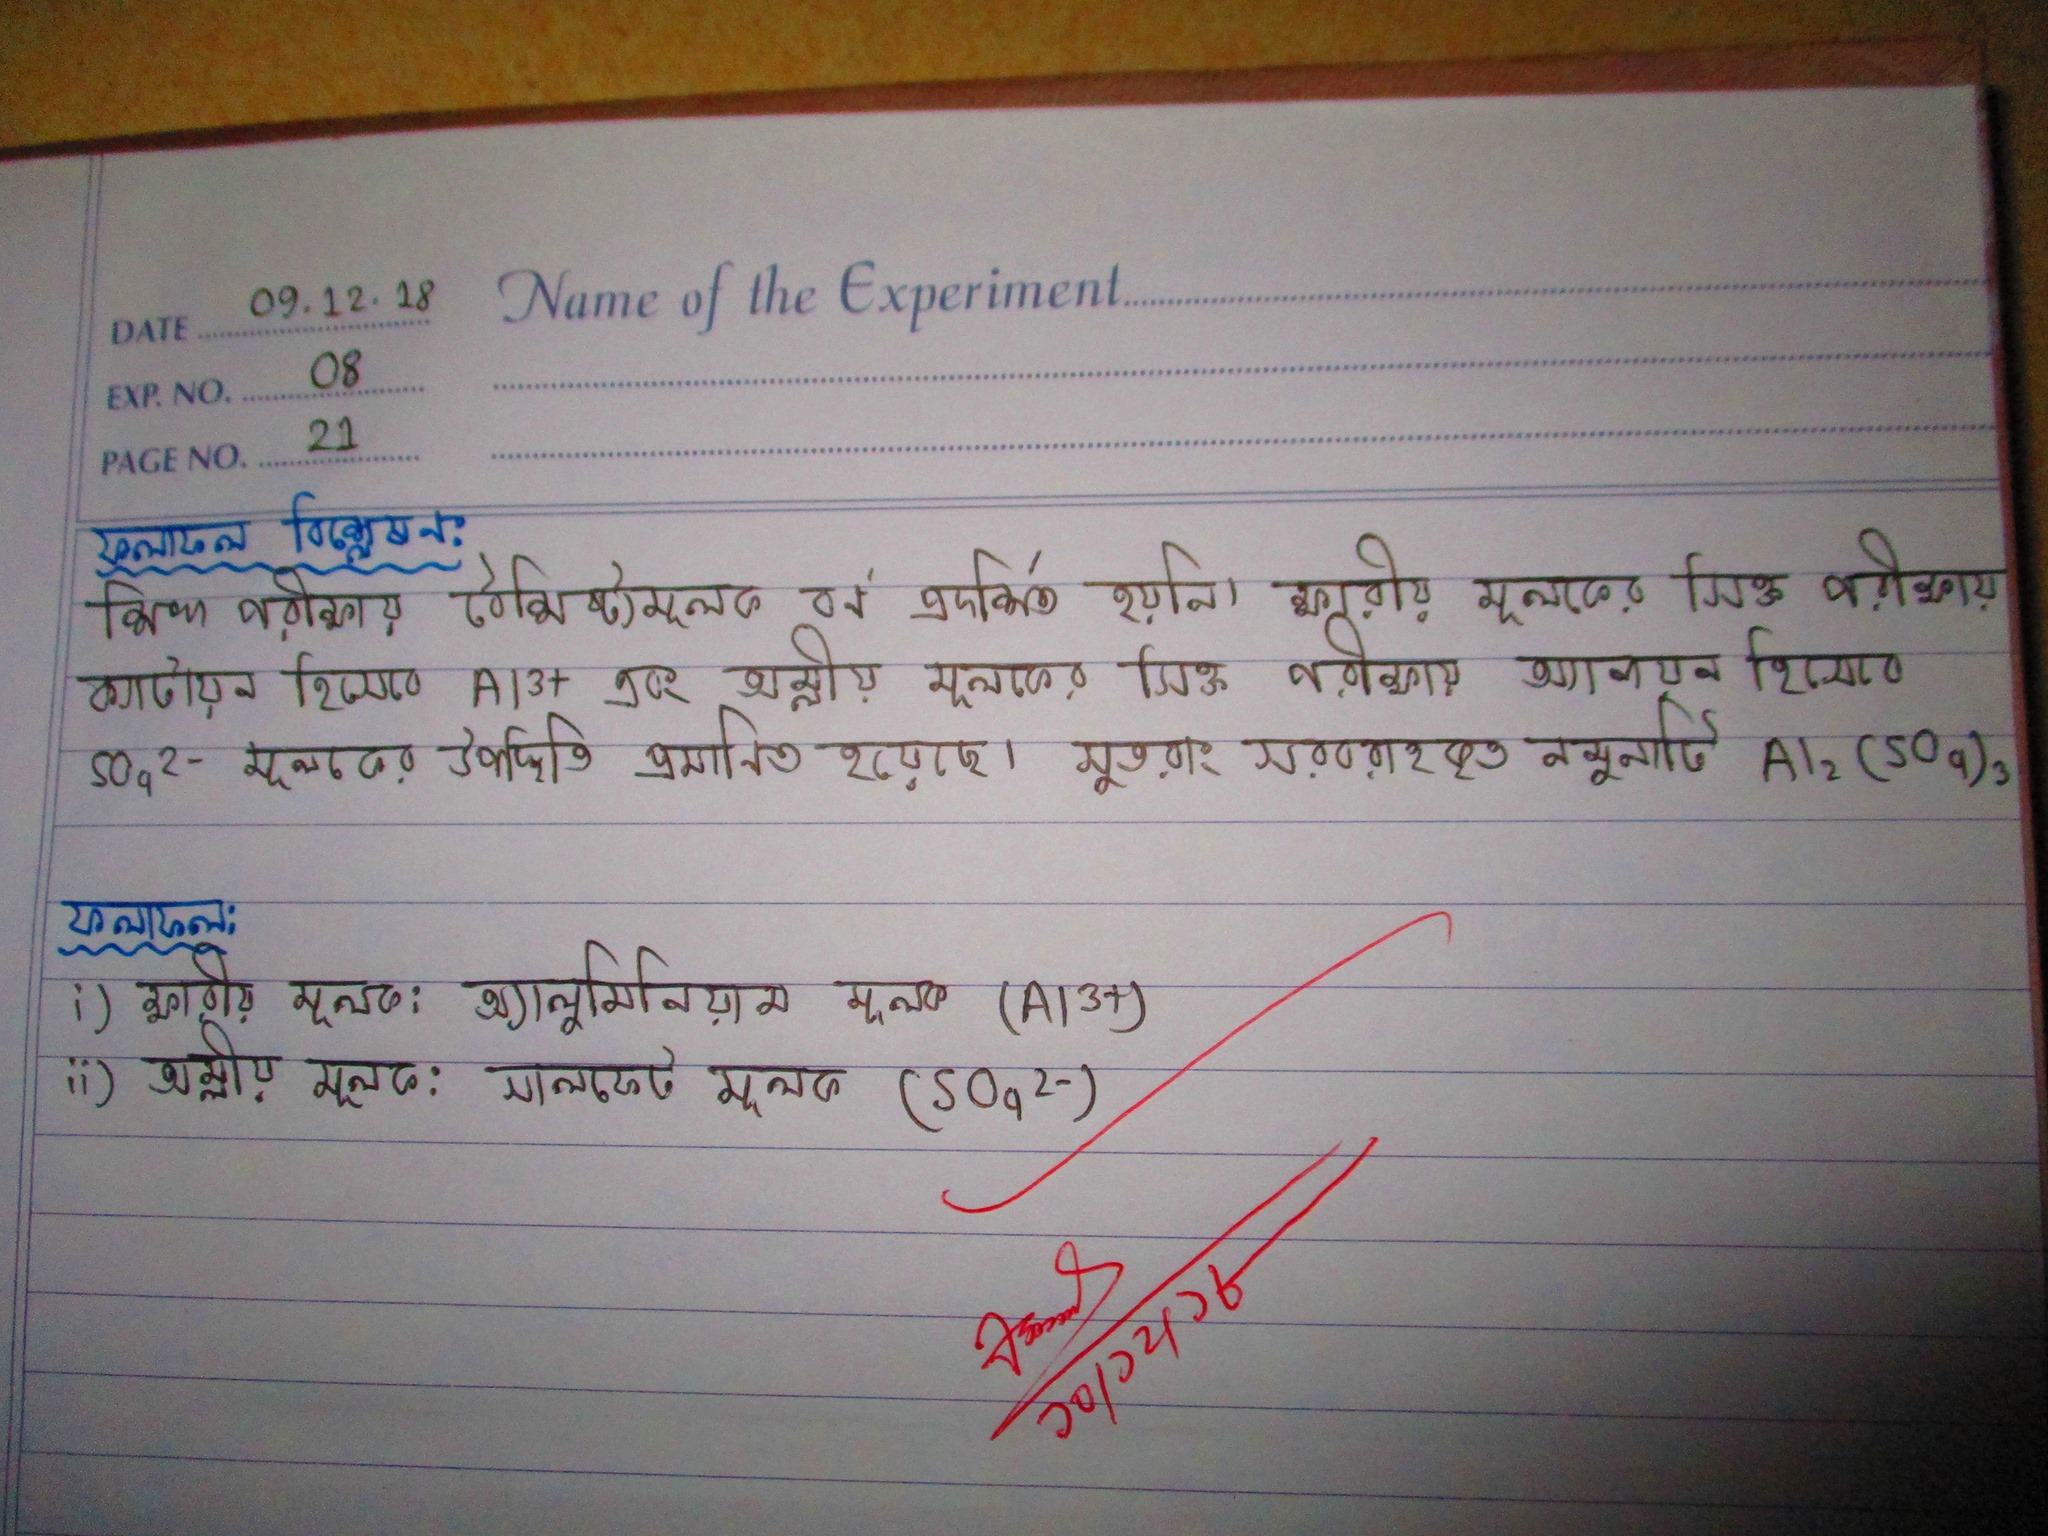 DATE 09.12.18
Name of the Experiment
EXP. NO. 08
PAGE NO. 21
ফলাফল বিশ্লেষন:
শিখা পরীক্ষায় বৈশিষ্ট্যমূলক বর্ণ প্রদর্শিত হয়নি। ক্ষারীয় মূলকের সিক্ত পরীক্ষায়
ক্যাটায়ন হিসেবে Al3+ এবং অম্লীয় মূলকের সিক্ত পরীক্ষায় অ্যানায়ন হিসেবে
SO₄2- মূলকের উপস্থিতি প্রমানিত হয়েছে। সুতরাং সরবরাহকৃত নমুনাটি Al₂(SO₄)₃
ফলাফল:
i) ক্ষারীয় মূলক: অ্যালুমিনিয়াম মূলক (Al3+)
ii) অম্লীয় মূলক: সালফেট মূলক (SO₄2-)
১০/১২/১৮